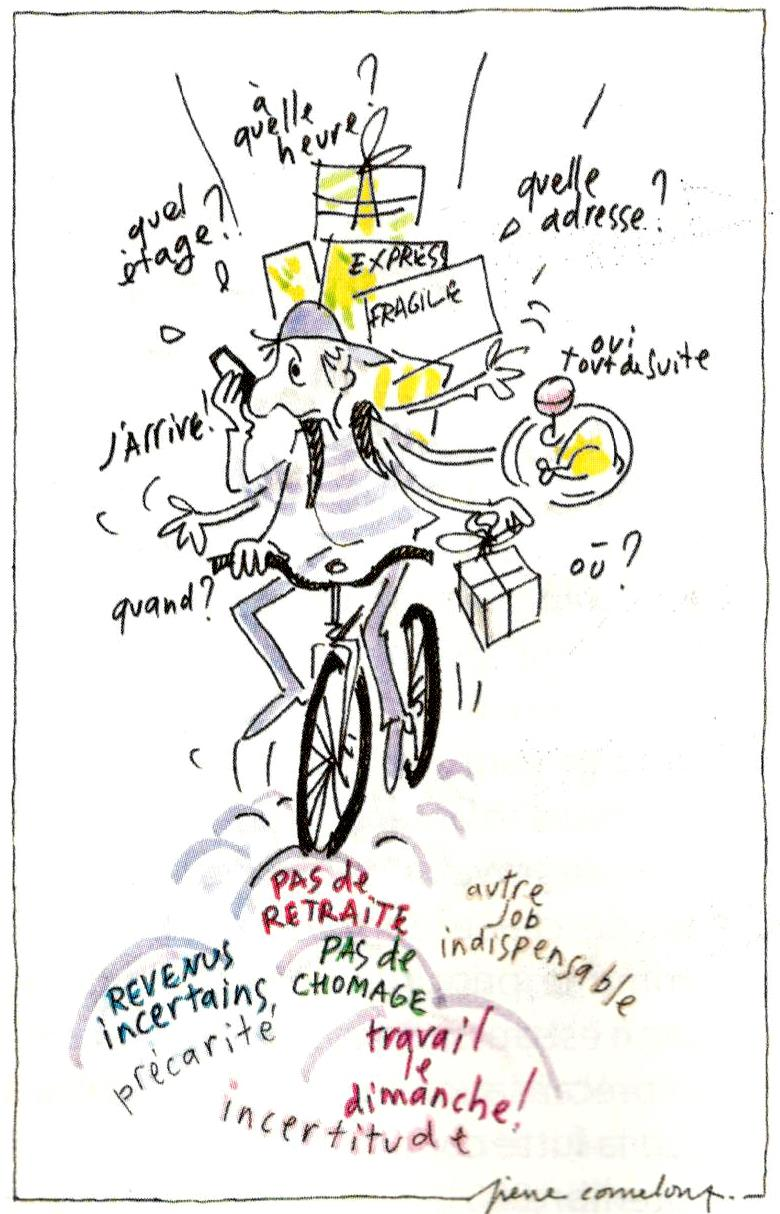 à
quelle
heure?
quel
étage?
quelle
adresse?
EXPRESS
FRAGILE
oui
tout de suite
J'ARRIVE!
où?
quand?
PAS de
RETRAITE
autre
Job
indispensable
PAS de
CHOMAGE
REVENUS
incertains,
précarité
travail
le
dimanche!
incertitude